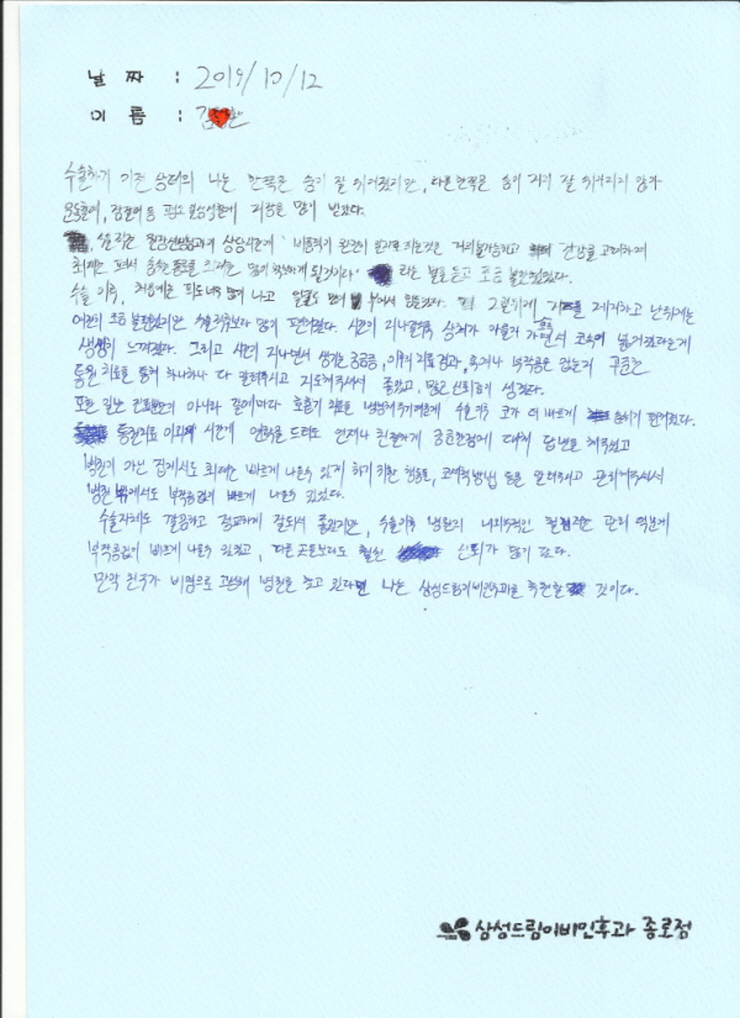 날 짜 : 2019/10/12
이 름 : 김
수술하기 이전 상태의 나는 한쪽은 숨이 잘 쉬어졌지만, 다른 한쪽은 숨이 거의 잘 쉬어지지 않아
운동할때, 잠잘때 등 평소 일상생활에 지장을 많이 받았다.
수술직전 원장선생님과의 상담시간에 '비중격이 완전히 일자로 되는것은 거의 불가능하고 건강을 고려하여
최대한 펴서 숨쉬는 통로를 최대한 많이 확보하게 될것이다' 라는 말을 듣고 조금 불안했었다.
수술 이후, 처음에는 피도 너무 많이 나고 얼굴도 많이 부어서 힘들었다. 2일뒤에 거즈를 제거하고 난 뒤에는
여전히 조금 불편했지만 수술직후보다 많이 편해졌다. 시간이 지나갈수록 상처가 아물어 가면서 코속이 넓어졌다는게
생생히 느껴졌다. 그리고 시간이 지나면서 생기는 궁금증, 이후의 치료경과, 혹여나 부작용은 없는지 꾸준한
통원 치료를 통해 하나하나 다 알려주시고 지도해주셔서 좋았고, 믿고 신뢰감이 생겼다.
또한 일반 진료뿐만 아니라 갈때마다 호흡기 치료를 병행해주기때문에 수술이후 코가 더 빠르게 숨쉬기 편해졌다.
통원치료 이외의 시간에 연락을 드려도 언제나 친절하게 궁금한점에 대해 답변을 해주셨고
병원이 아닌 집에서도 최대한 빠르게 나을수 있게 하기 위한 행동들, 코세척방법 등을 알려주시고 관리해주셔서
병원 밖에서도 부작용없이 빠르게 나을수 있었다.
수술자체도 깔끔하고 정교하게 잘되서 좋았지만, 수술이후 병원의 철저한 관리 덕분에
부작용없이 빠르게 나을수 있었고, 다른 곳들보다도 훨씬 신뢰가 많이 갔다.
만약 친구가 비염으로 고생해 병원을 찾고 있다면 나는 삼성드림이비인후과를 추천할 것이다.
삼성드림이비인후과 종로점